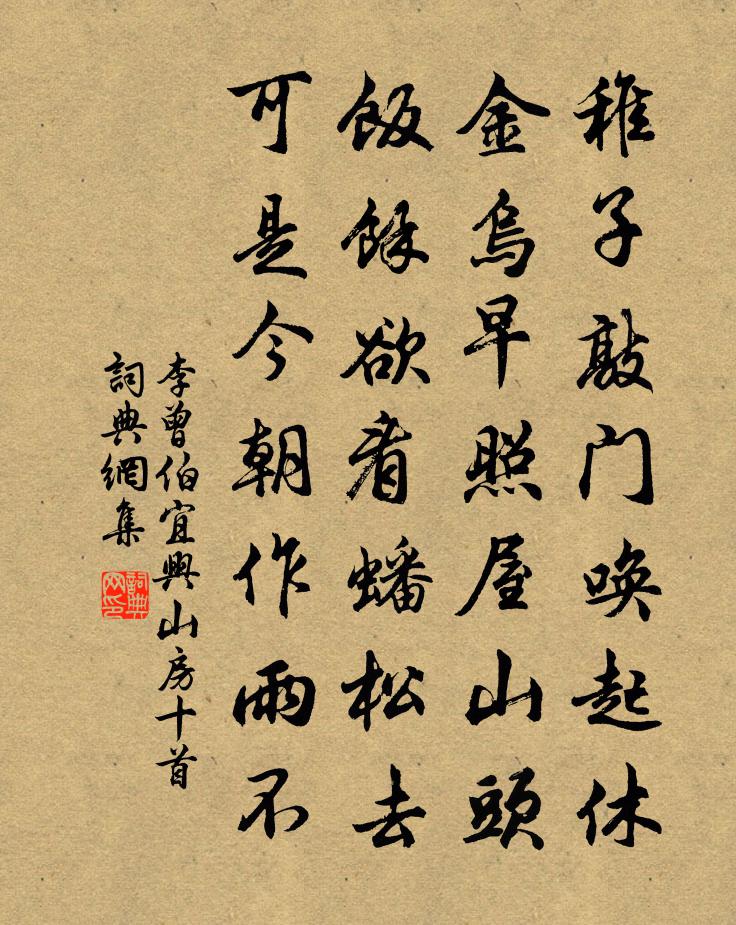 稚子敲门唤起休
金烏早照屋山頭
飯餘欲看蟠松去
可是今朝作雨不
李曾伯宜興山房十首
詞典網集
詞典网印